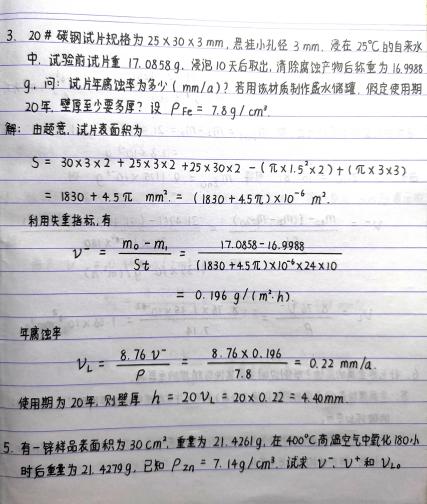 3. 20# 碳钢试片规格为 25×30×3 mm, 悬挂小孔径 3 mm. 浸在 25℃的自来水
中. 试验前试片重 17.0858 g. 浸泡 10天后取出, 清除腐蚀产物后称重为 16.9988
g. 问: 试片年腐蚀率为多少 (mm/a)? 若用该材质制作盛水储罐. 假定使用期
20年. 壁厚至少要多厚? 设 ρFe = 7.8g/cm³.
解: 由题意, 试片表面积为
S = 30×3×2 + 25×3×2 + 25×30×2 - (π×1.5²×2) + (π×3×3)
= 1830 + 4.5π mm². = (1830 + 4.5π)×10⁻⁶ m².
利用失重指标, 有
ν⁻ = (m₀ - m₁)/(St) = (17.0858-16.9988)/((1830+4.5π)×10⁻⁶×24×10)
= 0.196 g/(m².h).
年腐蚀率
νL = (8.76 ν⁻)/ρ = (8.76×0.196)/7.8 = 0.22 mm/a.
使用期为 20年, 则壁厚 h = 20νL = 20×0.22 = 4.40mm.
5. 有一锌样品表面积为 30 cm². 重量为 21.4261g. 在 400℃高温空气中氧化 180小
时后重量为 21.4279g. 已知 ρzn = 7.14g/cm³. 试求 ν⁻. ν⁺ 和 νL。